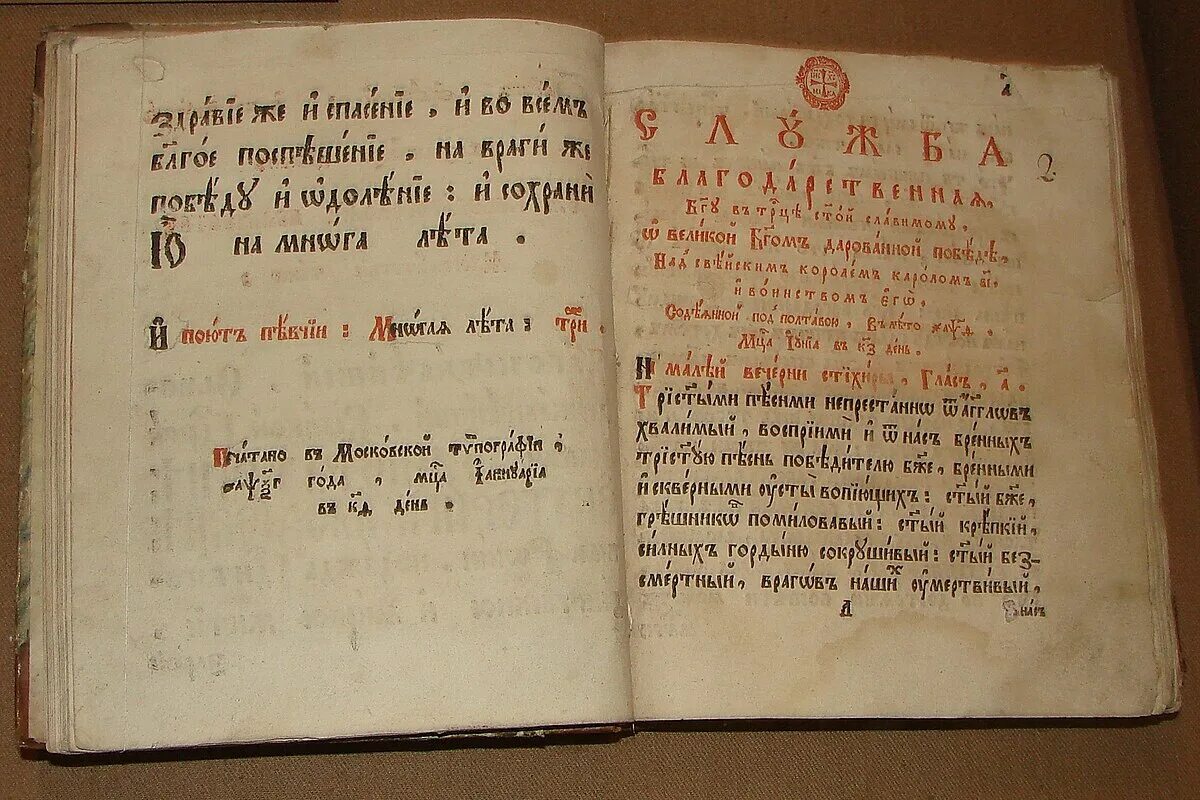 здра́вїе же и҆ спасе́нїе , и҆ во все́мъ
бл҃го́е поспѣше́нїе , на враги́ же
побѣ́ду и҆ ѡ҆долѣ́нїе : и҆ сохрани́
и҆̀ на мнѡ́га лѣ́та .
И҆ пою́тъ пѣвчїи : Мнѡ́гая лѣ́та : три .
Печа́тано въ Моско́вской тѷпогра́фїи ,
го́да , мцⷭ҇а і҆аннуа́рїа
въ к҃д де́нь .
СЛꙊ́ЖБА
2.
БЛАГОДА́РСТВЕННАЯ,
Бг҃у въ трⷪ҇цѣ ст҃о́й сла́вимому,
ѡ҆ вели́кой Бг҃омъ дарова́нной побѣ́дѣ,
Над̾ све́йскимъ короле́мъ ка́роломъ в҃і,
и҆ во́инствомъ є҆гѡ̀,
Содѣ́янной под̾ полта́вою, Въ лѣ́то ҂аѱ҃ѳ .
Мцⷭ҇а І҆у́нїа въ к҃з де́нь .
Н маⷧ҇ѣй вече́рни стїхи́ры , Гла́съ , а҃ .
Трїст҃ы́ми пѣ́сньми непреста́ннѡ ѿ а҆́гг҃лѡвъ
хвали́мый , воспрїими́ и҆ ѿ на́съ бре́нныхъ
трїст҃у́ю пѣ́снь побѣди́телю бж҃е, бре́нными
и҆ скве́рными ᲂу҆сты̀ вопїю́щихъ : ст҃ы́й бж҃е,
грѣ́шникѡⷡ поми́ловавый : ст҃ы́й крѣ́пкїй,
си́лныхъ горды́ню сокруши́вый : ст҃ы́й без-
сме́ртный , врагѡ́въ на́шиⷯ ᲂу҆мертви́вый,
А
на́съ